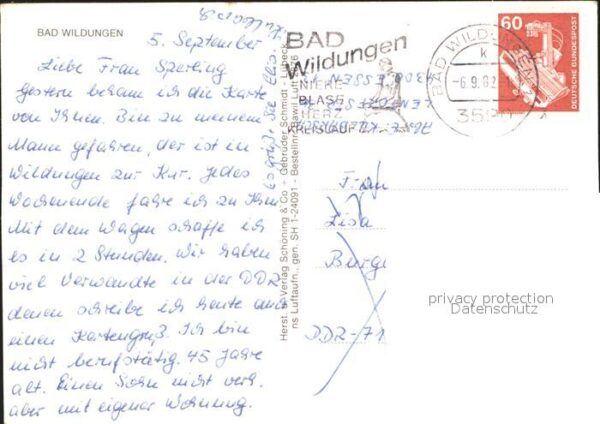 BAD WILDUNGEN
5. September
Liebe Frau Sperling
gestern bekam ich die Karte
von Ihnen. Bin zu meinem
Mann gefahren, der ist in
Wildungen zur Kur. Jedes
Wochenende fahre ich zu Ihm
Mit dem Wagen schaffe ich
es in 2 Stunden. Wir haben
viel Verwandte in der DDR
denen schreibe ich heute auch
einen Kartengruß. Ich bin
nicht berufstätig. 45 Jahre
alt. Einen Sohn nicht verh.
aber mit eigener Wohnung.
Es grüßt Sie Ellis.
Herst. u. Verlag Schöning & Co + Gebrüder Schmidt · Lübeck
ns Luftaufn. gen. SH 1-24091 - Bestellnr.
BAD
Wildungen
NIERE
BLASE
HERZ
KREISLAUF
BAD WILDUNGEN
K
-6.9.82
3590
60
DEUTSCHE BUNDESPOST
4300 ESSEN 1
Frau
Lisa
Burge
DDR-71
privacy protection
Datenschutz